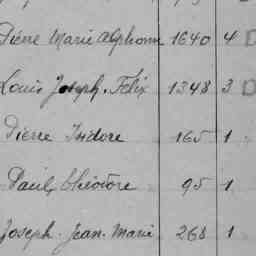 Pierre Marie Alphonse 1640 4
Louis Joseph. Félix 1348 3
Pierre Isidore 165 1
Paul, Théodore 95 1
Joseph. Jean. Marie 268 1